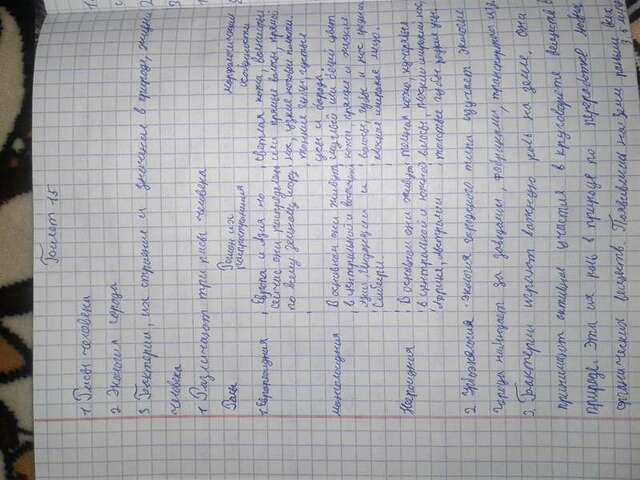 Билет 15
1. Расы человека
2 Экология города
3 Бактерии, их строение и значение в природе, жизни
человека
1 Различают три расы человека
Расы
Район их
распространения
морфологические
особенности
1. Европеоидная
Европа и Азия но
сейчас они распределены
по всему земному шару
светлая кожа, волнистые
или прямые волосы, прямой
нос, узкие
тонкие губы, густые
усы и борода.
монголоидная
В основном они живут
в центральной и восточной
Азии Индонезии и
Сибири.
смуглый или белый цвет
кожи прямые и жёсткие
волосы, губы и нос средний
плоское широкое лицо.
Негроидная
В основном они живут
в центральной и южной
Африке, Австралии
тёмная кожа, кучерявые
волосы, плоский широкий нос,
толстые губы редкие усы.
2 Урбоэкология - экология городского типа изучает экологию
города наблюдает за заводами, фабриками, транспортом и
3. Бактерии играют важную роль на земле. Они
принимают активное участия в круговороте веществ в
природе. Эта их роль в природе по переработке
органических веществ. Появившись на Земле раньше всех
3.5 млрд